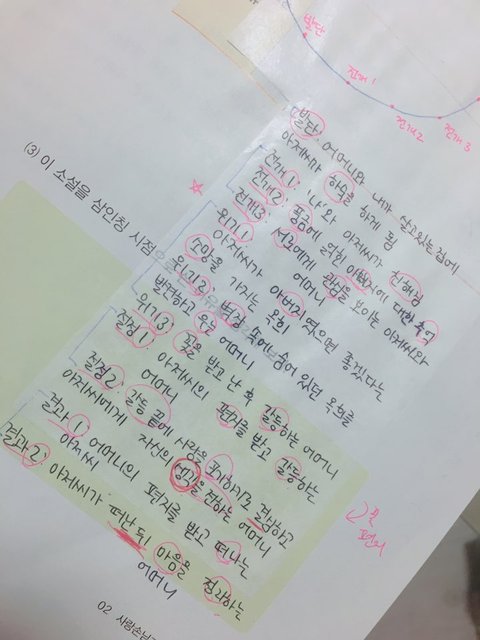 발단
전개 1
전개 2
전개 3
(3) 이 소설을 삼인칭 시점으로
발단: 어머니와 내가 살고있는 집에
아저씨가 하숙을 하게 됨
전개 1: '나'와 아저씨가 친해짐
전개 2: 풍금에 얽힌 아버지에 대한 추억
전개 3: 서로에게 관심을 보이는 아저씨와
어머니
위기 1: 아저씨가 아버지였으면 좋겠다는
소망을 가지는 옥희
위기 2: 벽장 속에 숨어 있던 옥희를
발견하고 우는 어머니
위기 3: 꽃을 받고 난 후 갈등하는 어머니
절정 1: 아저씨의 편지를 받고 갈등하는
어머니
절정 2: 갈등 끝에 사랑을 포기하기로 결심하고
아저씨에게 자신의 생각을 전하는 어머니
결과 1: 어머니의 편지를 받고 떠나는
아저씨
결과 2: 아저씨가 떠난 뒤 마음을 정리하는
어머니
편지
02 사랑손님